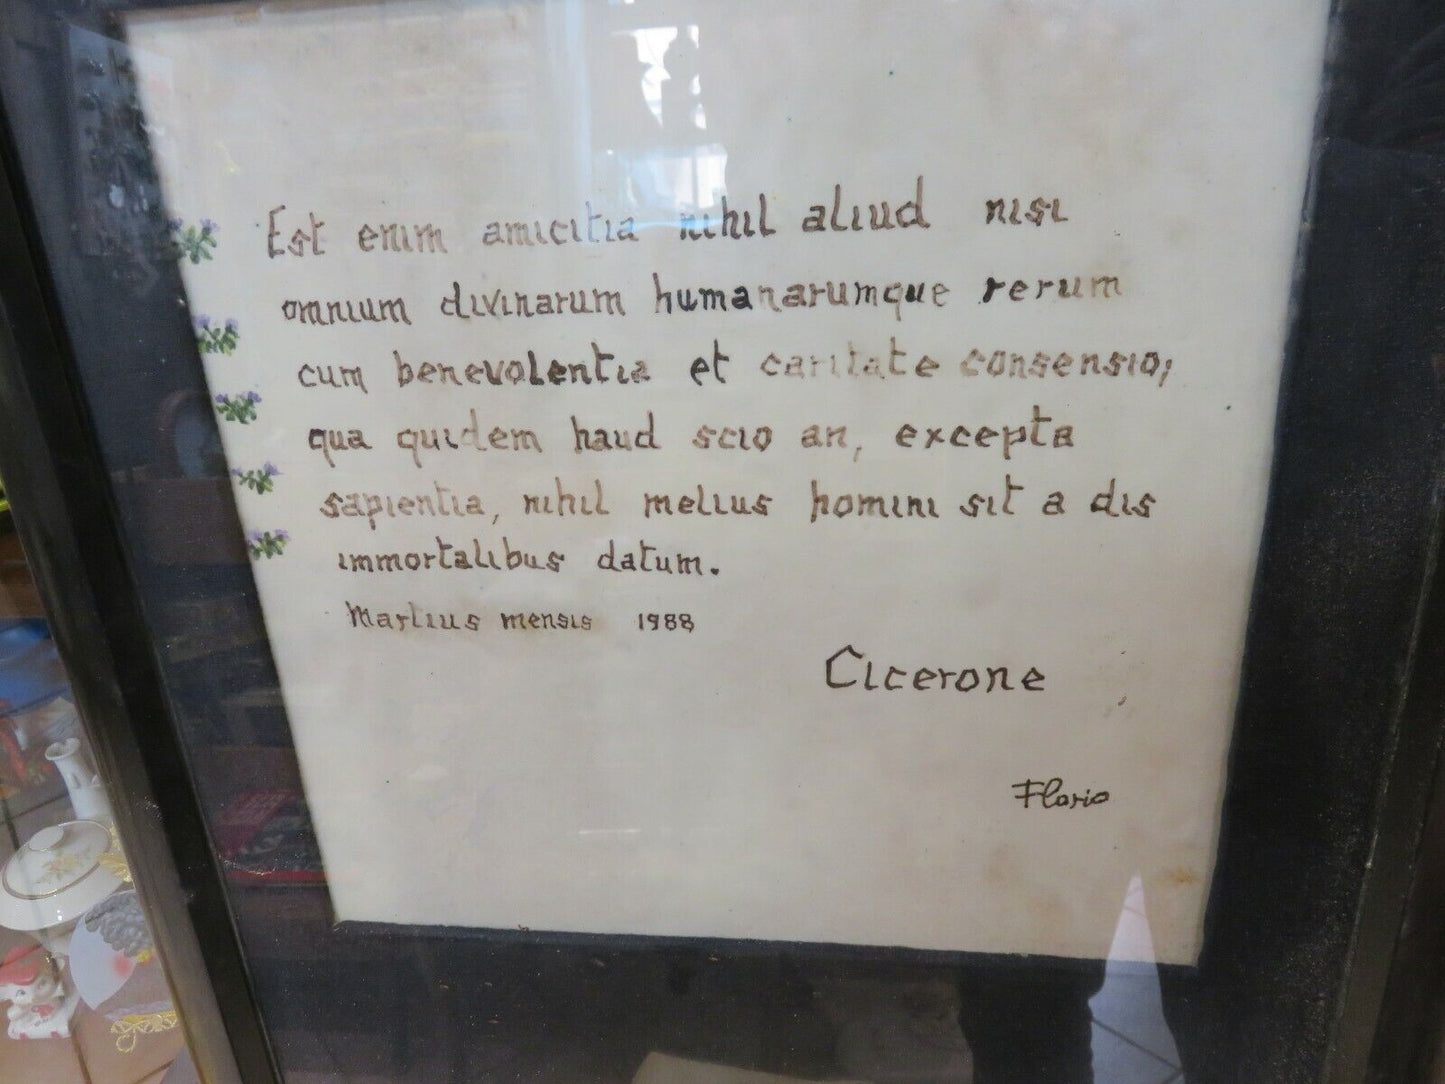 Est enim amicitia nihil aliud nisi
omnium divinarum humanarumque rerum
cum benevolentia et caritate consensio;
qua quidem haud scio an, excepta
sapientia, nihil melius homini sit a dis
immortalibus datum.
Martius mensis 1988
Cicerone
Florio